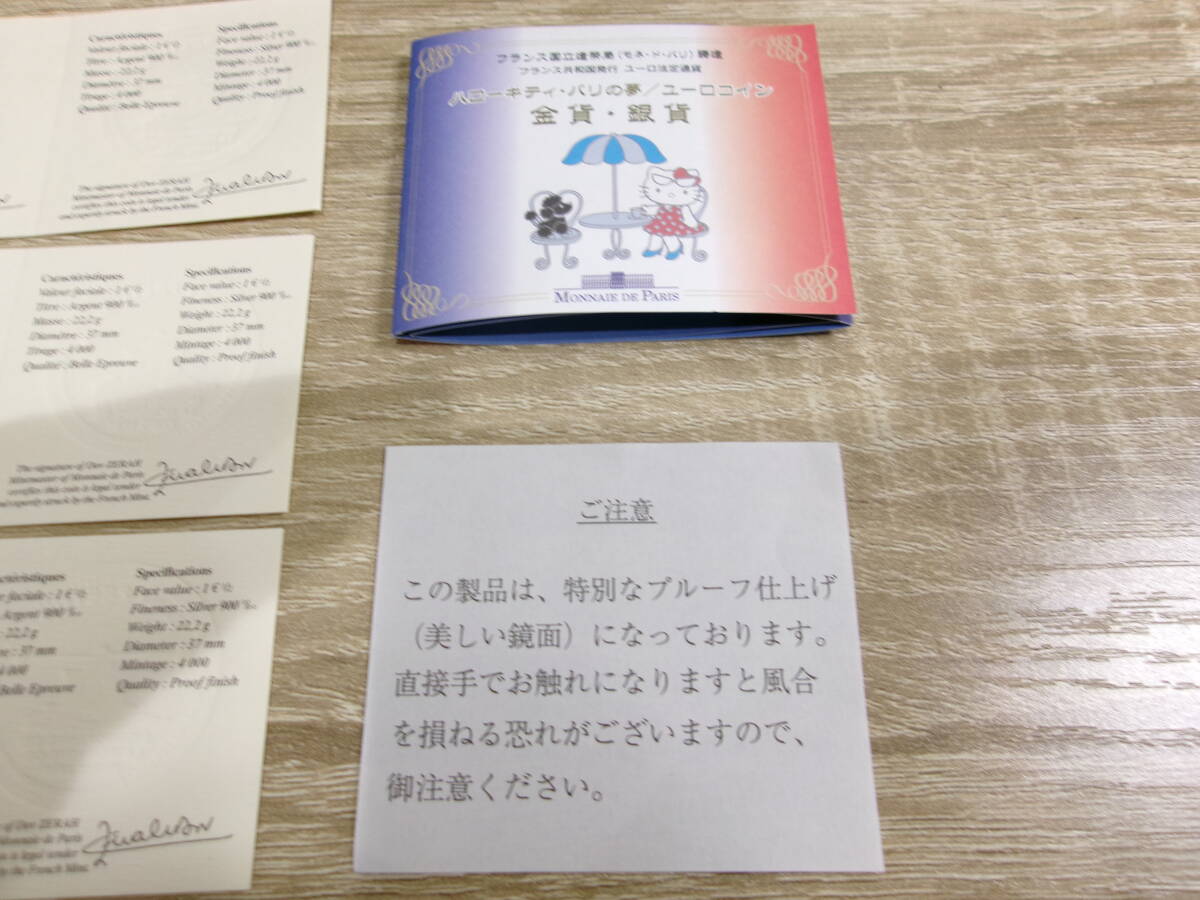 Caractéristiques
Valeur faciale : 1 € ½
Titre : Argent 900 ‰
Masse : 22,2 g
Diamètre : 37 mm
Tirage : 4 000
Qualité : Belle Epreuve
Specifications
Face value : 1 € ½
Fineness : Silver 900 ‰
Weight : 22,2 g
Diameter : 37 mm
Mintage : 4 000
Quality : Proof finish
The signature of Dov ZERAH
Mintmaster of Monnaie de Paris
certifies this coin is legal tender
and expertly struck by the French Mint.
Caractéristiques
Valeur faciale : 1 € ½
Titre : Argent 900 ‰
Masse : 22,2 g
Diamètre : 37 mm
Tirage : 4 000
Qualité : Belle Epreuve
Specifications
Face value : 1 € ½
Fineness : Silver 900 ‰
Weight : 22,2 g
Diameter : 37 mm
Mintage : 4 000
Quality : Proof finish
The signature of Dov ZERAH
Mintmaster of Monnaie de Paris
certifies this coin is legal tender
and expertly struck by the French Mint.
faciale : 1 € ½
Argent 900 ‰
22,2 g
37 mm
Belle Epreuve
Specifications
Face value : 1 € ½
Fineness : Silver 900 ‰
Weight : 22,2 g
Diameter : 37 mm
Mintage : 4 000
Quality : Proof finish
of Dov ZERAH
Monnaie de Paris
coin is legal tender
by the French Mint.
フランス国立造幣局(モネ・ド・パリ)鋳造
フランス共和国発行 ユーロ法定通貨
ハローキティ・パリの夢/ユーロコイン
金貨・銀貨
MONNAIE DE PARIS
ご注意
この製品は、特別なプルーフ仕上げ
(美しい鏡面)になっております。
直接手でお触れになりますと風合
を損ねる恐れがございますので、
御注意ください。